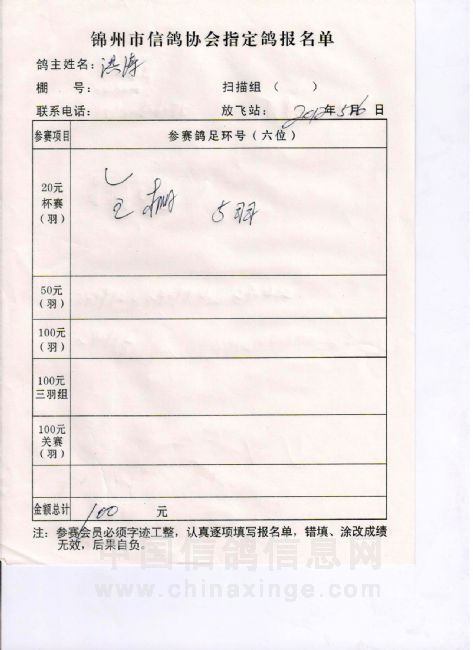 锦州市信鸽协会指定鸽报名单
鸽主姓名：洪涛
棚 号： 扫描组（ ）
联系电话： 放飞站：2012年5月6日
参赛项目 参赛鸽足环号（六位）
20元
杯赛
（羽）
5羽
50元
（羽）
100元
（羽）
100元
三羽组
100元
关赛
（羽）
金额总计 100 元
注：参赛会员必须字迹工整，认真逐项填写报名单，错填、涂改成绩
无效，后果自负。
中国信鸽信息网
www.chinaxinge.com